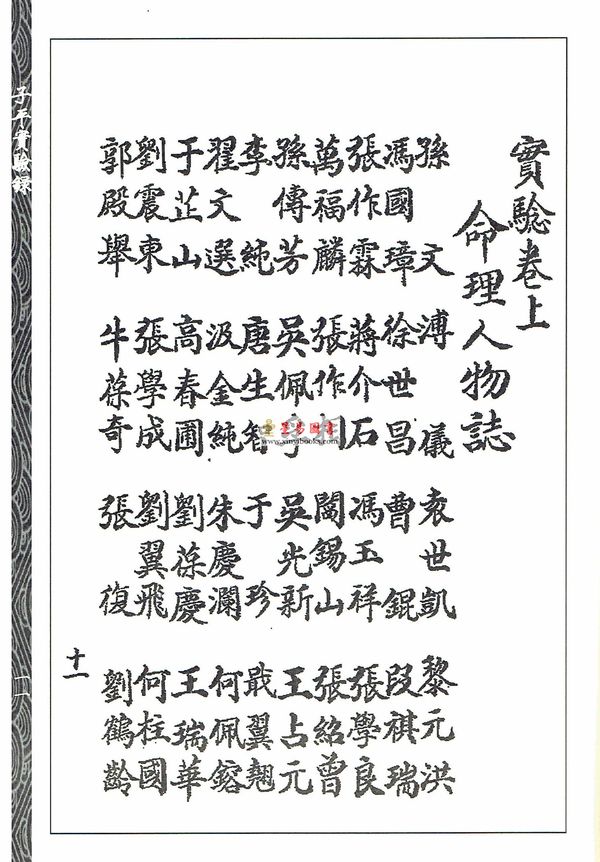 實驗卷上
命理人物誌
孫文 溥儀 袁世凱 黎元洪
馮國璋 徐世昌 曹錕 段祺瑞
張作霖 蔣介石 馮玉祥 張學良
萬福麟 張作 閻錫山 張紹曾
孫傳芳 吳佩孚 吳光新 王占元
李純 唐生智 于珍 戢翼翹
翟文選 汲金純 朱慶瀾 何佩鎔
于芷山 高春圃 劉葆慶 王瑞華
劉震東 張學成 劉翼飛 何柱國
郭殿舉 牛葆奇 張復 劉鶴齡
十一
子平實驗錄
一一
易图书
www.xinyibooks.com